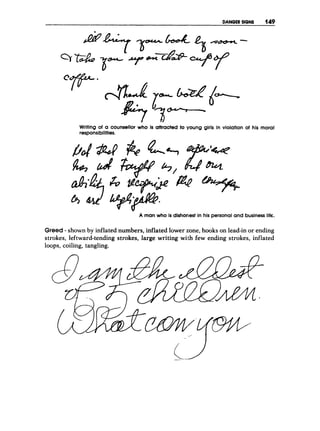 DANGER SIGNS 149
bring your book by soon –
take you up on that cup of
coffee.
Thank you both for
being you
Writing of a counsellor who is attracted to young girls in violation of his moral
responsibilities.
Not that the experience
has not taught us, but our
ability to recognize the
A man who is dishonest in his personal and business life.
Greed - shown by inflated numbers, inflated lower zone, hooks on lead-in or ending
strokes, leftward-tending strokes, large writing with few ending strokes, inflated
loops, coiling, tangling.
I am the eldest
of 5 children.
What can you